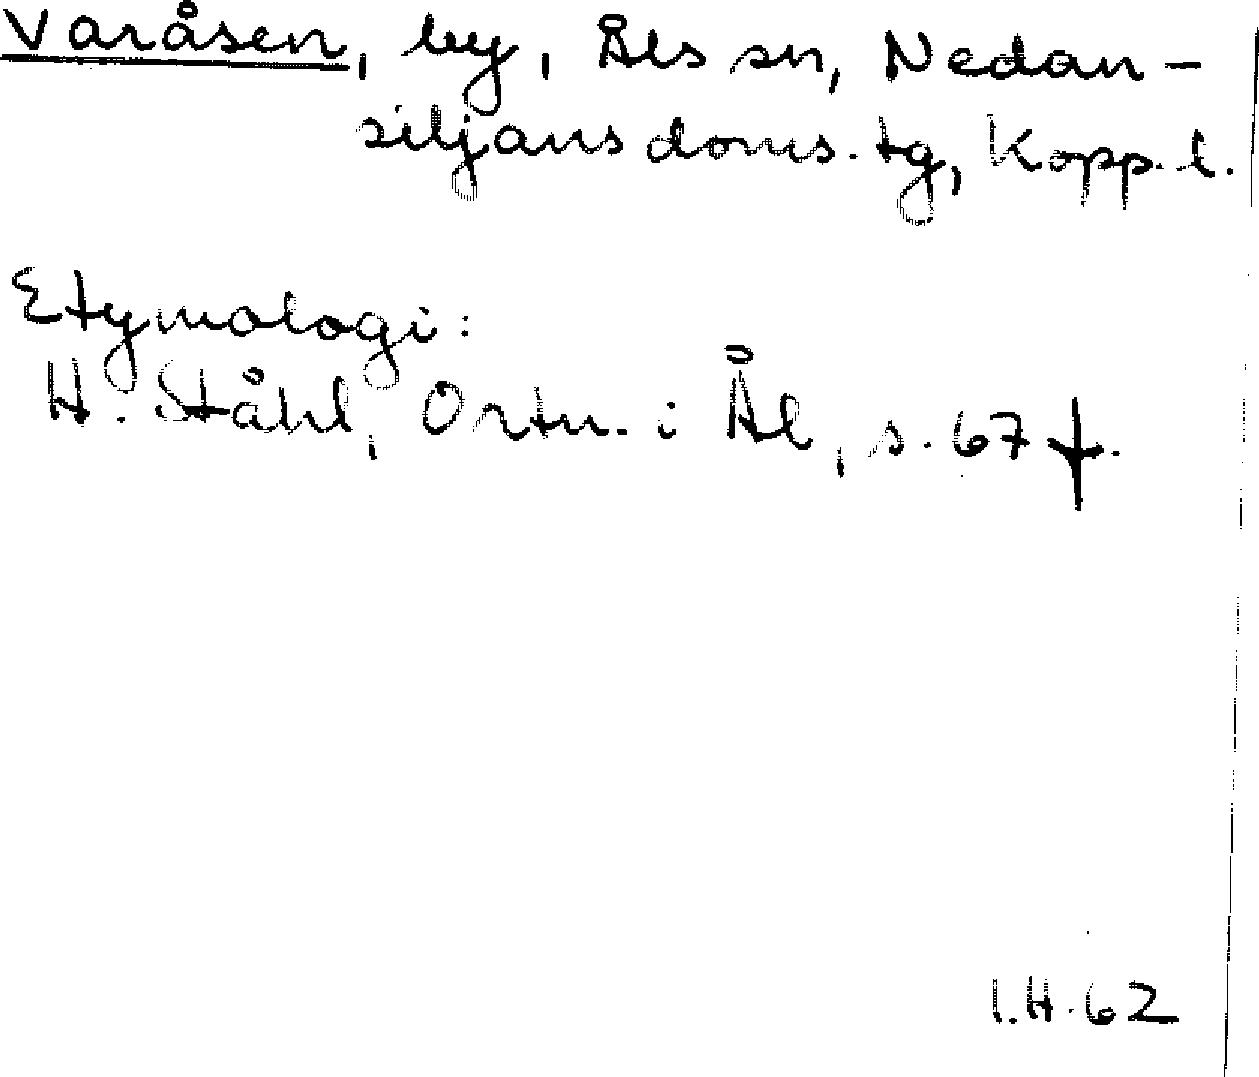 Varåsen, by, Åls sn, Nedan-
siljans doms. tg, Kopp. l.
Etymologi:
H. Ståhl, Ortn. i Ål, s. 67 f.
I.H. 62